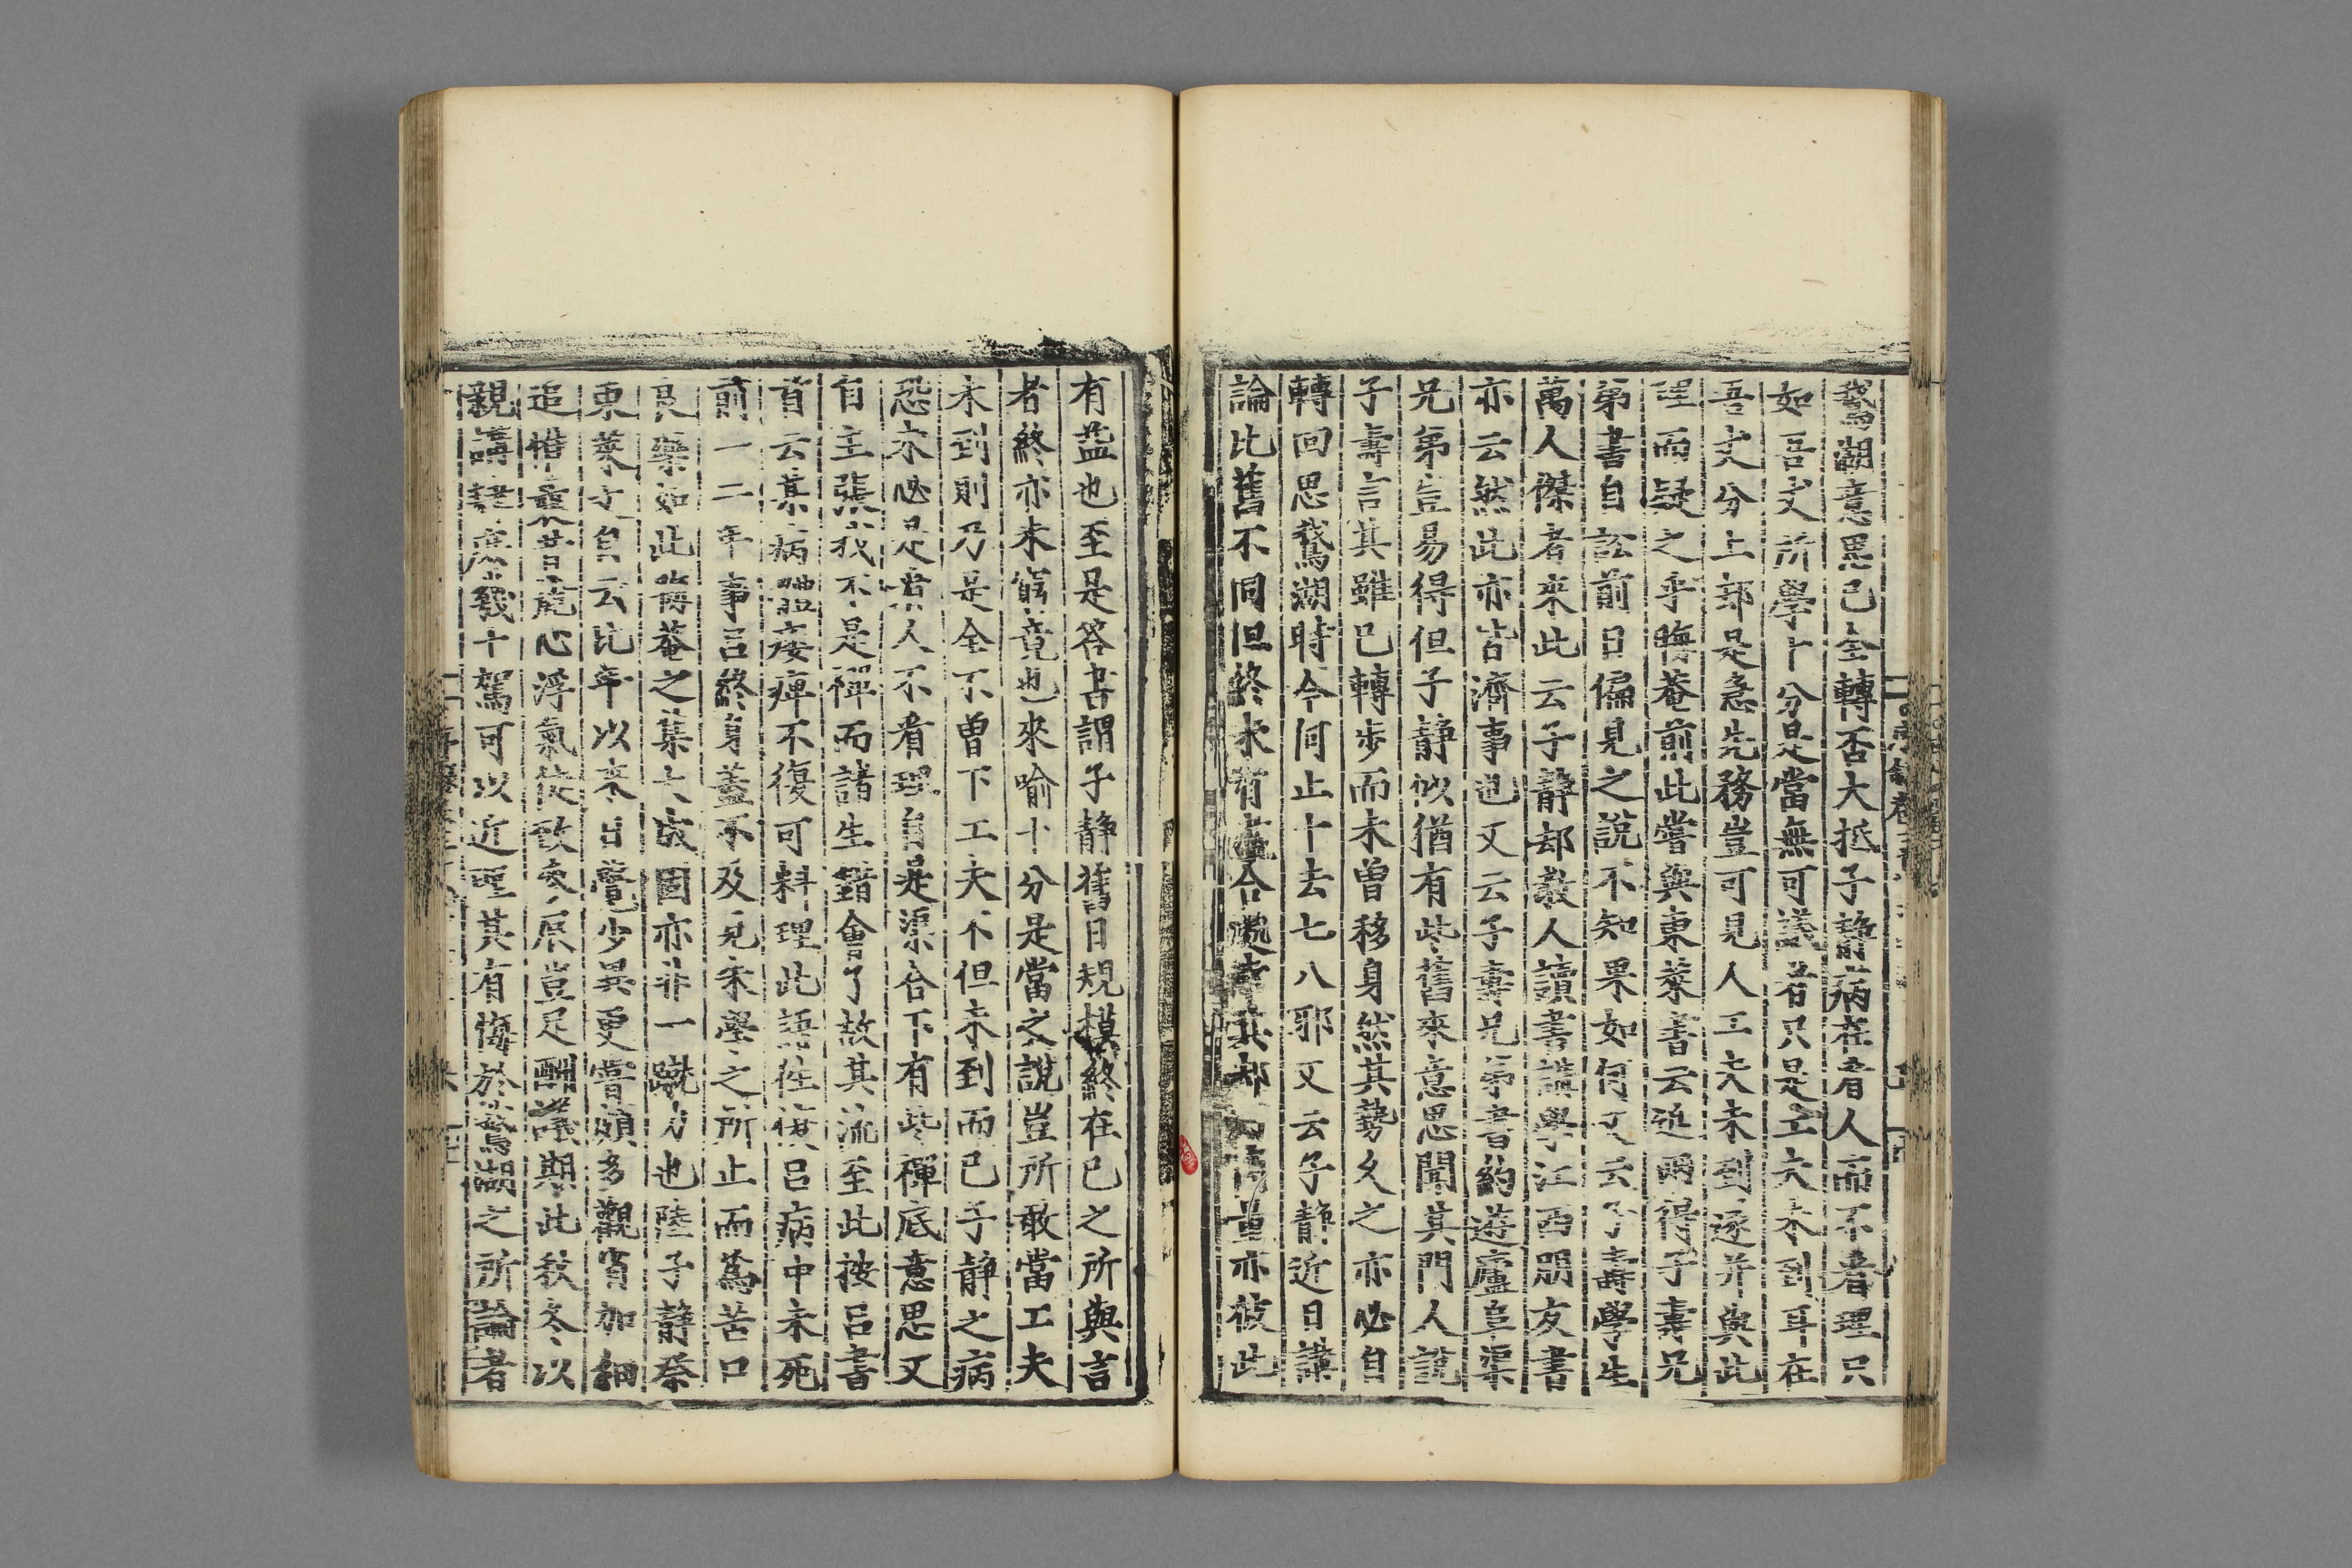 鵞湖意思已全轉否大抵子靜病在看人而不看理只
如吾丈所學十分是當無可議者只是工夫未到耳在
吾丈分上却是急先務豈可見人工夫未到遂并與此
理而疑之乎晦菴前此嘗與東萊書云近兩得子壽兄
弟書自訟前日偏見之說不知果如何又云子壽學生
萬人傑者來此云子靜却教人讀書講學江西朋友書
亦云然此亦皆濟事也又云子壽兄弟書約遊廬阜渠
兄弟豈易得但子靜似猶有些舊來意思聞其門人說
子壽言其雖已轉步而未曾移身然其勢久之亦必自
轉回思鵞湖時今何止十去七八邪又云子靜近日講
論比舊不同但終未有盡合處幸其却 亦彼此
有益也至是答書謂子靜舊日規模終在已之所與言
者終亦未窮竟也來喻十分是當之說豈所敢當工夫
未到則乃是全不曾下工夫不但未到而已子靜之病
恐未必是看人不看理自是渠合下有些禪底意思又
自主張我不是禪而諸生錯會了故其流至此彼呂書
首云某病體痿痺不復可料理此語在後呂病中未死
前一二年事呂終身蓋不及見朱學之所止而爲苦口
良藥如此晦菴之集大成固亦非一蹴功也陸子靜祭
東萊文自云比年以來日覺少異更嘗頗多觀省加細
追惟曩昔麄心浮氣徒致參辰豈足酬議期此秋冬以
親講肄庶幾十駕可以近理其有悔於鵞湖之所論者